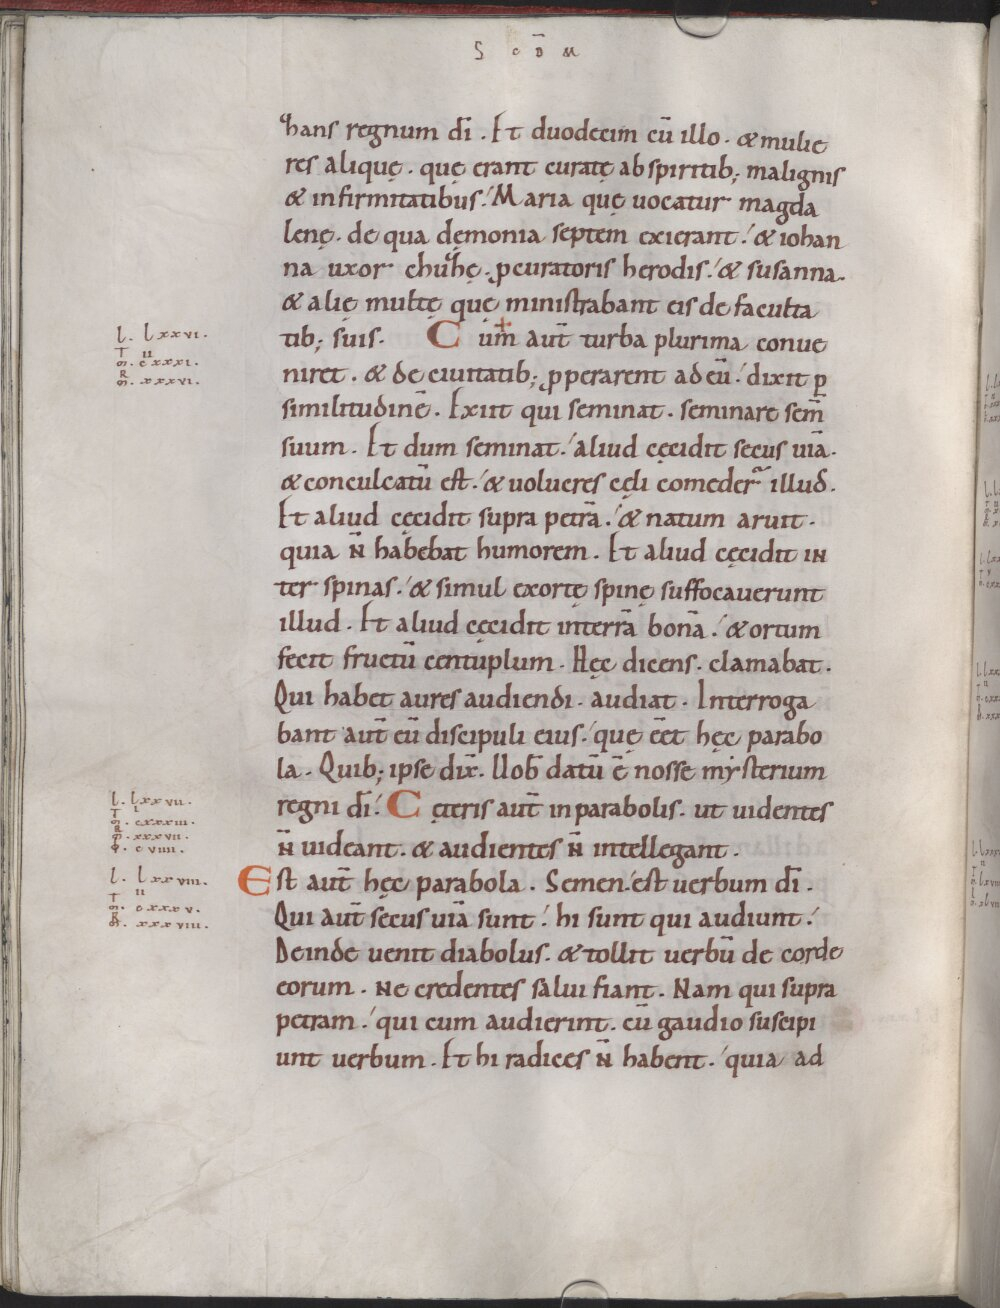 S c D̄ M
hans regnum dī . Et duodecim cū illo . & mulie
res aliquę . quę erant curatę ab spiritib; malignis
& infirmitatibus . Maria quę uocatur magda
lenę . de qua dęmonia septem exierant . & iohan
na uxor chuhę . ꝓcuratoris herodis . & susanna .
& alię multę quę ministrabant eis de faculta
tib; suis . Cum̄ aut̄ turba plurima conue
niret . & de ciuitatib; ꝓperarent ad eū . dixit ꝑ
similitudinē . Exiit qui seminat . seminare sem̄
suum . Et dum seminat . aliud cęcidit secus uiā .
& conculcatū est . & uolucres cęli comeder̄ illud .
Et aliud cęcidit supra petrā . & natum aruit .
quia n̄ habebat humorem . Et aliud cęcidit in
ter spinas . & simul exortę spinę suffocauerunt
illud . Et aliud cęcidit interrā bonā . & ortum
fecit fructū centuplum . Hęc dicens . clamabat .
Qui habet aures audiendi . audiat . Interroga
bant aut̄ eū discipuli eius . quę eēt hęc parabo
la . Quib; ipse dix̄ . Uob̄ datū ē nosse mysterium
regni dī . Cęteris aut̄ in parabolis . ut uidentes
n̄ uideant . & audientes n̄ intellegant .
Est aut̄ hęc parabola . Semen . est uerbum dī .
Qui aut̄ sęcus uiā sunt . hi sunt qui audiunt .
Deinde uenit diabolus . & tollit uerbū de corde
eorum . ne credentes salui fiant . Nam qui supra
petram . qui cum audierint . cū gaudio suscipi
unt uerbum . Et hi radices n̄ habent . quia ad
l . lxxvi .
II
m . cxxxi .
R
m . xxxvi .
l . lxxvii .
I
m . cxxxiii .
R
xxxvii .
c viiii .
l . lxxviii .
II
m . cxxxv .
R . xxxviii .